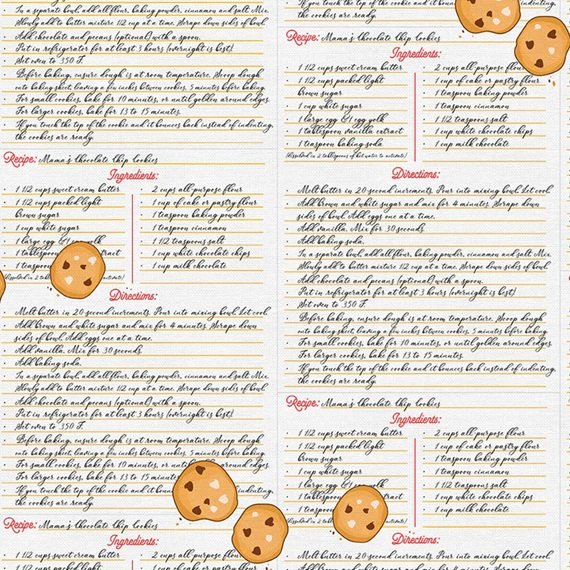 In a separate bowl, add all flour, baking powder, cinnamon and salt. Mix.
Slowly add to butter mixture 1/2 cup at a time. Scrape down sides of bowl.
• Add chocolate and pecans (optional) with a spoon.
• Put in refrigerator for at least 3 hours (overnight is best)
• Set oven to 350 F.
Before baking, ensure dough is at room temperature. Scoop dough
onto baking sheet, leaving a few inches between cookies, 5 minutes before baking.
• For small cookies, bake for 10 minutes, or until golden around edges.
For larger cookies, bake for 13 to 15 minutes.
• If you touch the top of the cookie and it bounces back instead of indenting,
the cookies are ready.
Recipe: Mama's Chocolate Chip Cookies
Ingredients:
• 1 1/2 cups sweet cream butter
• 1 1/2 cups packed light
brown sugar
• 1 cup white sugar
• 1 large egg & 1 egg yolk
• 1 tablespoon extract
• 1 teaspoon
(dissolved in 2 tablespoons of hot water to activate)
• 2 cups all purpose flour
• 1 cup of cake or pastry flour
• 1 teaspoon baking powder
• 1 teaspoon cinnamon
• 1 1/2 teaspoons salt
• 1 cup white chocolate chips
• 1 cup milk chocolate
Directions:
Melt butter in 20 second increments. Pour into mixing bowl. Let cool.
• Add brown and white sugar and mix for 4 minutes. Scrape down
sides of bowl. Add eggs one at a time.
• Add vanilla. Mix for 30 seconds.
• Add baking soda.
• In a separate bowl, add all flour, baking powder, cinnamon and salt. Mix.
Slowly add to butter mixture 1/2 cup at a time. Scrape down sides of bowl.
• Add chocolate and pecans (optional) with a spoon.
• Put in refrigerator for at least 3 hours (overnight is best)
• Set oven to 350 F.
Before baking, ensure dough is at room temperature. Scoop dough
onto baking sheet, leaving a few inches between cookies, 5 minutes before baking.
• For small cookies, bake for 10 minutes, or until golden around edges.
For larger cookies, bake for 13 to 15
• If you touch the top of the cookie and it bounces indenting,
the cookies are ready.
Recipe: Mama's Chocolate Chip Cookies
Ingredients:
• 1 1/2 cups sweet cream butter
• 1 1/2 cups packed light
• 2 cups all purpose flour
• 1 cup of cake or pastry flour
If you touch the top of the cookie
the cookies are ready.
Recipe: Mama's Chocolate Chip Cookies
Ingredients:
• 1 1/2 cups sweet cream butter
• 1 1/2 cups packed light
brown sugar
• 1 cup white sugar
• 1 large egg & 1 egg yolk
• 1 tablespoon vanilla extract
• 1 teaspoon baking soda
(dissolved in 2 tablespoons of hot water to activate)
• 2 cups all purpose flour
• 1 cup of cake or pastry
• 1 teaspoon baking powder
• 1 teaspoon cinnamon
• 1 1/2 teaspoons salt
• 1 cup white chocolate chips
• 1 cup milk chocolate chips
Directions:
Melt butter in 20 second increments. Pour into mixing bowl. Let cool.
• Add brown and white sugar and mix for 4 minutes. Scrape down
sides of bowl. Add eggs one at a time.
• Add vanilla. Mix for 30 seconds.
• Add baking soda.
• In a separate bowl, add all flour, baking powder, cinnamon and salt. Mix.
Slowly add to butter mixture 1/2 cup at a time. Scrape down sides of bowl.
• Add chocolate and pecans (optional) with a spoon.
• Put in refrigerator for at least 3 hours (overnight is best)
• Set oven to 350 F.
Before baking, ensure dough is at room temperature. Scoop dough
onto baking sheet, leaving a few inches between cookies, 5 minutes before baking.
• For small cookies, bake for 10 minutes, or until golden around edges.
For larger cookies, bake for 13 to 15 minutes.
• If you touch the top of the cookie and it bounces back instead of indenting,
the cookies are ready.
Recipe: Mama's Chocolate Chip Cookies
Ingredients:
• 1 1/2 cups sweet cream butter
• 1 1/2 cups packed light
brown sugar
• 1 cup white sugar
• 1 large egg
• 1 tablespoon
• 1 teaspoon
(dissolved in 2 tablespoons activate)
• 2 cups all purpose flour
• 1 cup of cake or pastry flour
• 1 teaspoon baking powder
• 1 teaspoon cinnamon
• 1 1/2 teaspoons salt
• 1 cup white chocolate chips
• 1 cup milk chocolate chips
Directions:
Melt butter in 20 second increments. Pour into mixing bowl. Let cool.